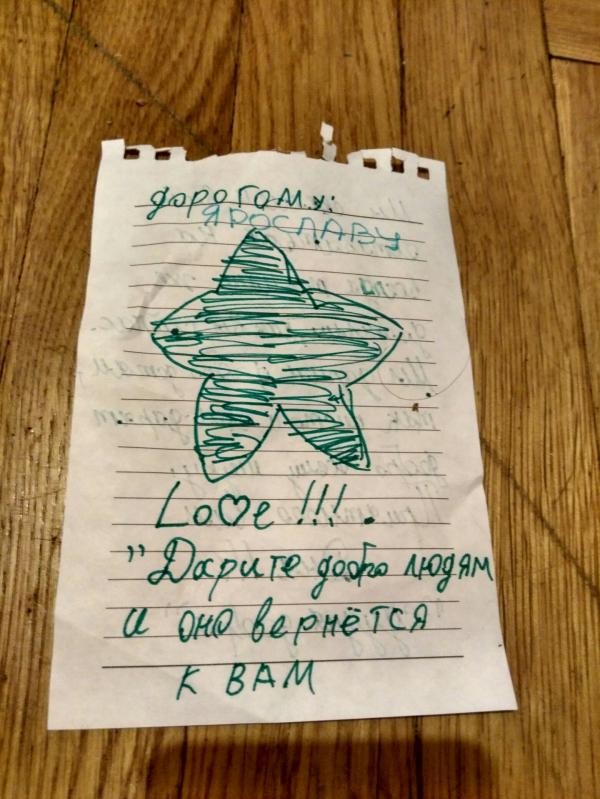 дорогому:
ЯРОСЛАВУ
Lo♡e !!!.
"Дарите добро людям
и оно вернётся
к ВАМ